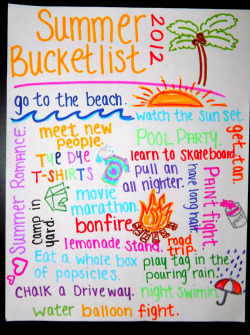 Summer
Bucketlist
2012
go to the beach.
watch the sun set.
meet new
people.
POOL PARTY.
get tan.
Summer Romance.
TYE DYE
T-SHIRTS
learn to skateboard
pull an
all nighter.
have long hair.
Paint fight.
movie
marathon.
camp in
yard.
bonfire
lemonade stand.
road
trip.
Eat a whole box
of popsicles.
play tag in the
pouring rain.
CHALK A DRIVEWAY.
night swimin.
water balloon fight.